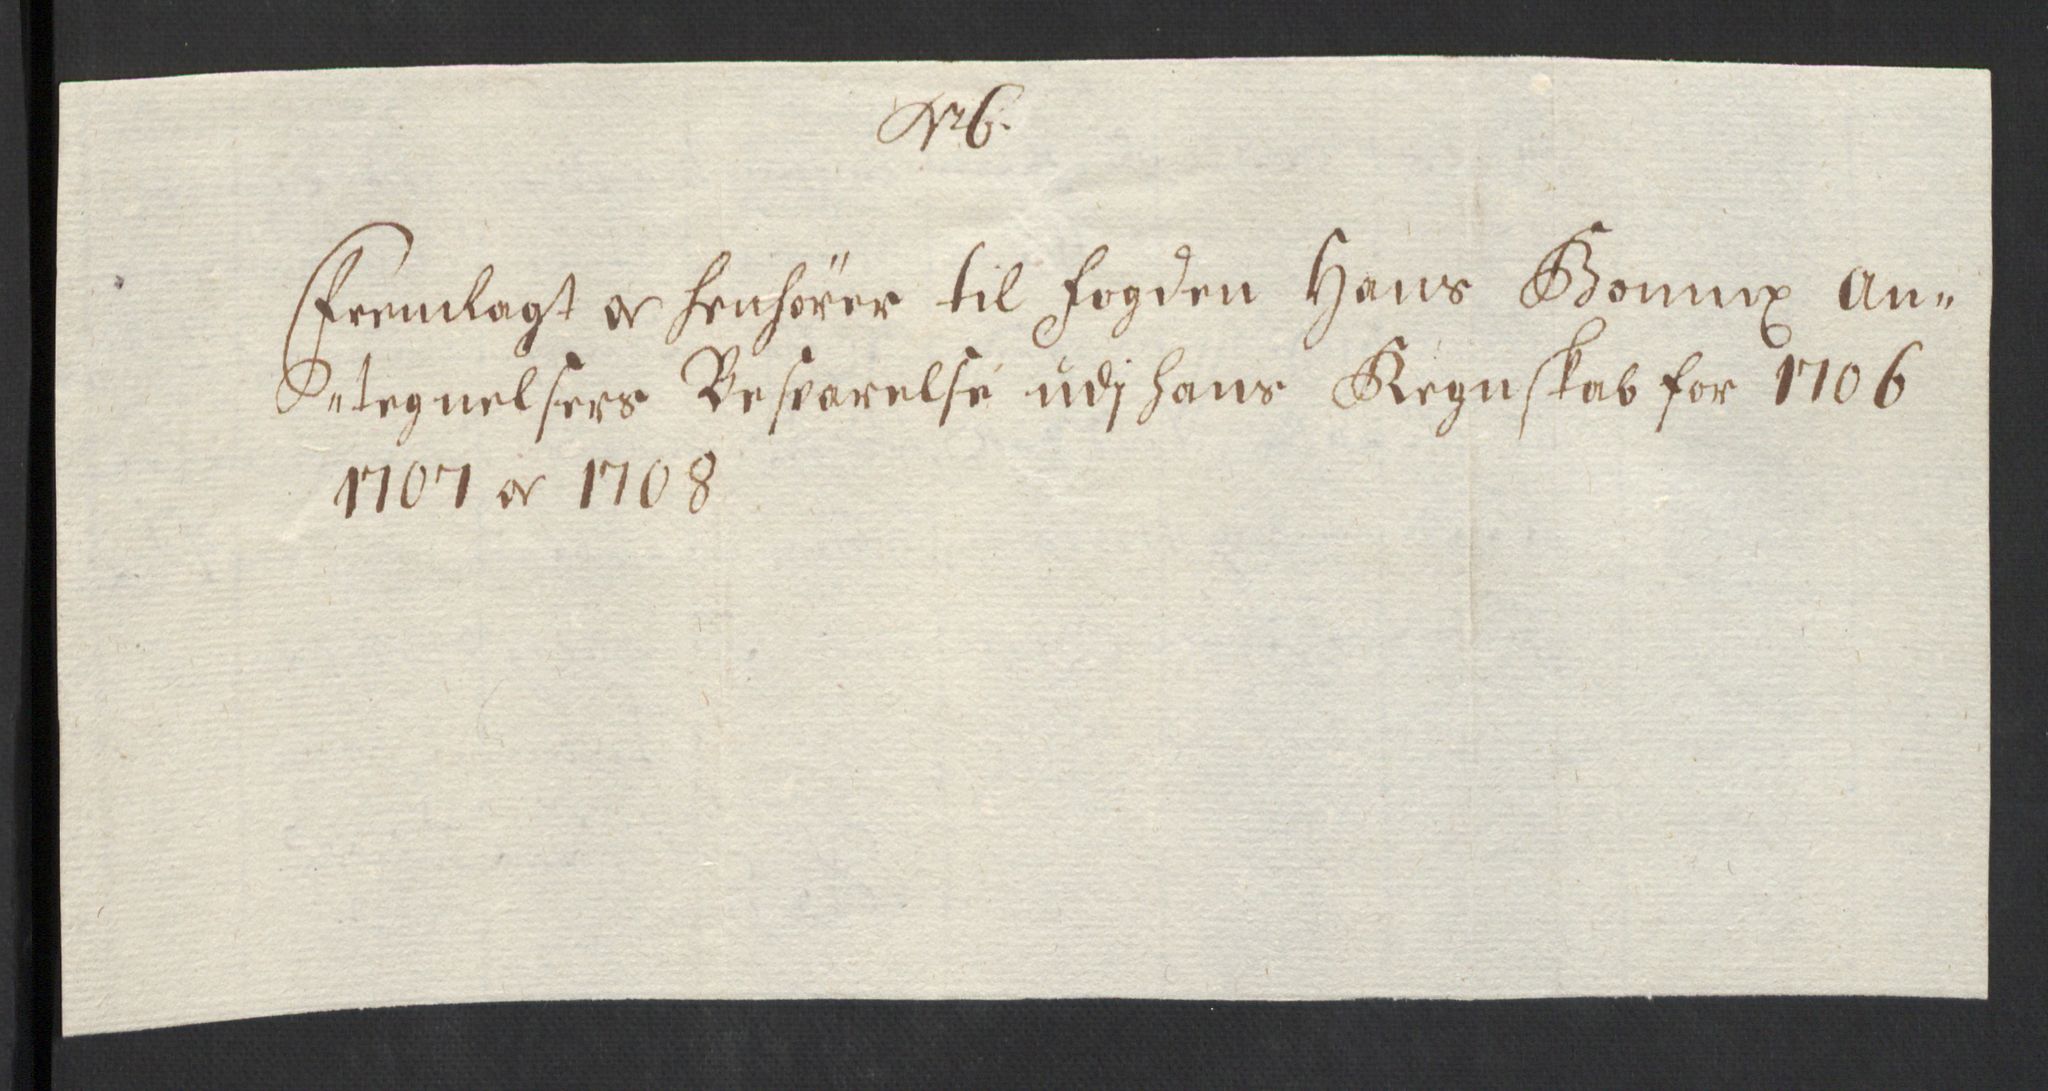 No 6.
Fremlagt og henhörer til fogden Hans Bonnix An-
Tegnelsers Besvarelse udj hans Regnskab for 1706
1707 og 1708